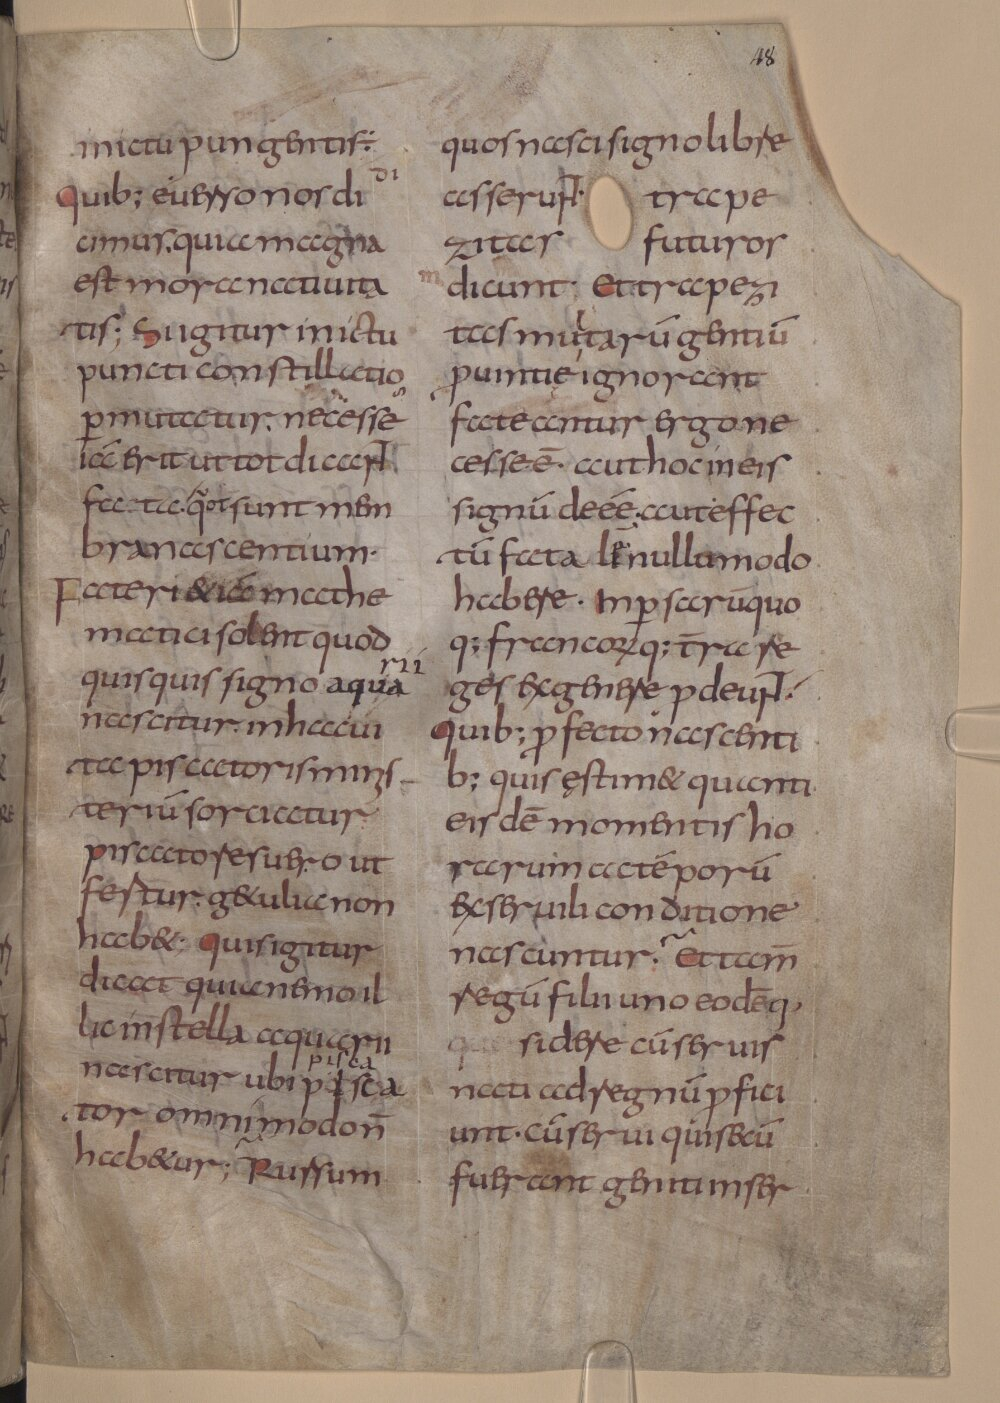 48
in ictu pungentis:
Quib; e uerso nos di
cimus. quia magna
est mora natiuita
tis; Si igitur in ictu
puncti constillatio
p̄mutatur. necesse
iā erit ut tot dicant
fata. qͣot sunt mem
bra nascentium.
Fateri & iā mathe
matici solent quod
quisquis signo aquarii
nascitur. in hac ui
ta piscatoris minis
teriū sortiatur
piscatores uero ut
fertur. getulia non
hab&; Quis igitur
dicat quia nemo il
lic in stella aquarii
nascitur ubi pisca
tor omnimodo n̄
hab&ur; Rursum
quos nasci signo librae
asserunt trape
zitas futuros
dicunt; Et trapezi
tas multarū gentiū
puintię ignorant
fateantur ergo ne
cesse ē. aut hoc in eis
signū deēē. aut effec
tū fata lē nullo modo
habere. In p̄sarū quo
q; francorūq; t̄ra re
ges ex genere pdeunt;
Quib; pfecto nascenti
b; quis ęstim& quanti
eisdē momentis ho
rarum ac tēporū
ex seruili conditione
nascuntur. Et tam̄
regū filii uno eodēq,
sidere cū seruis
nati ad regnū pfici
unt. cū serui qui secū
fuerant geniti in ser